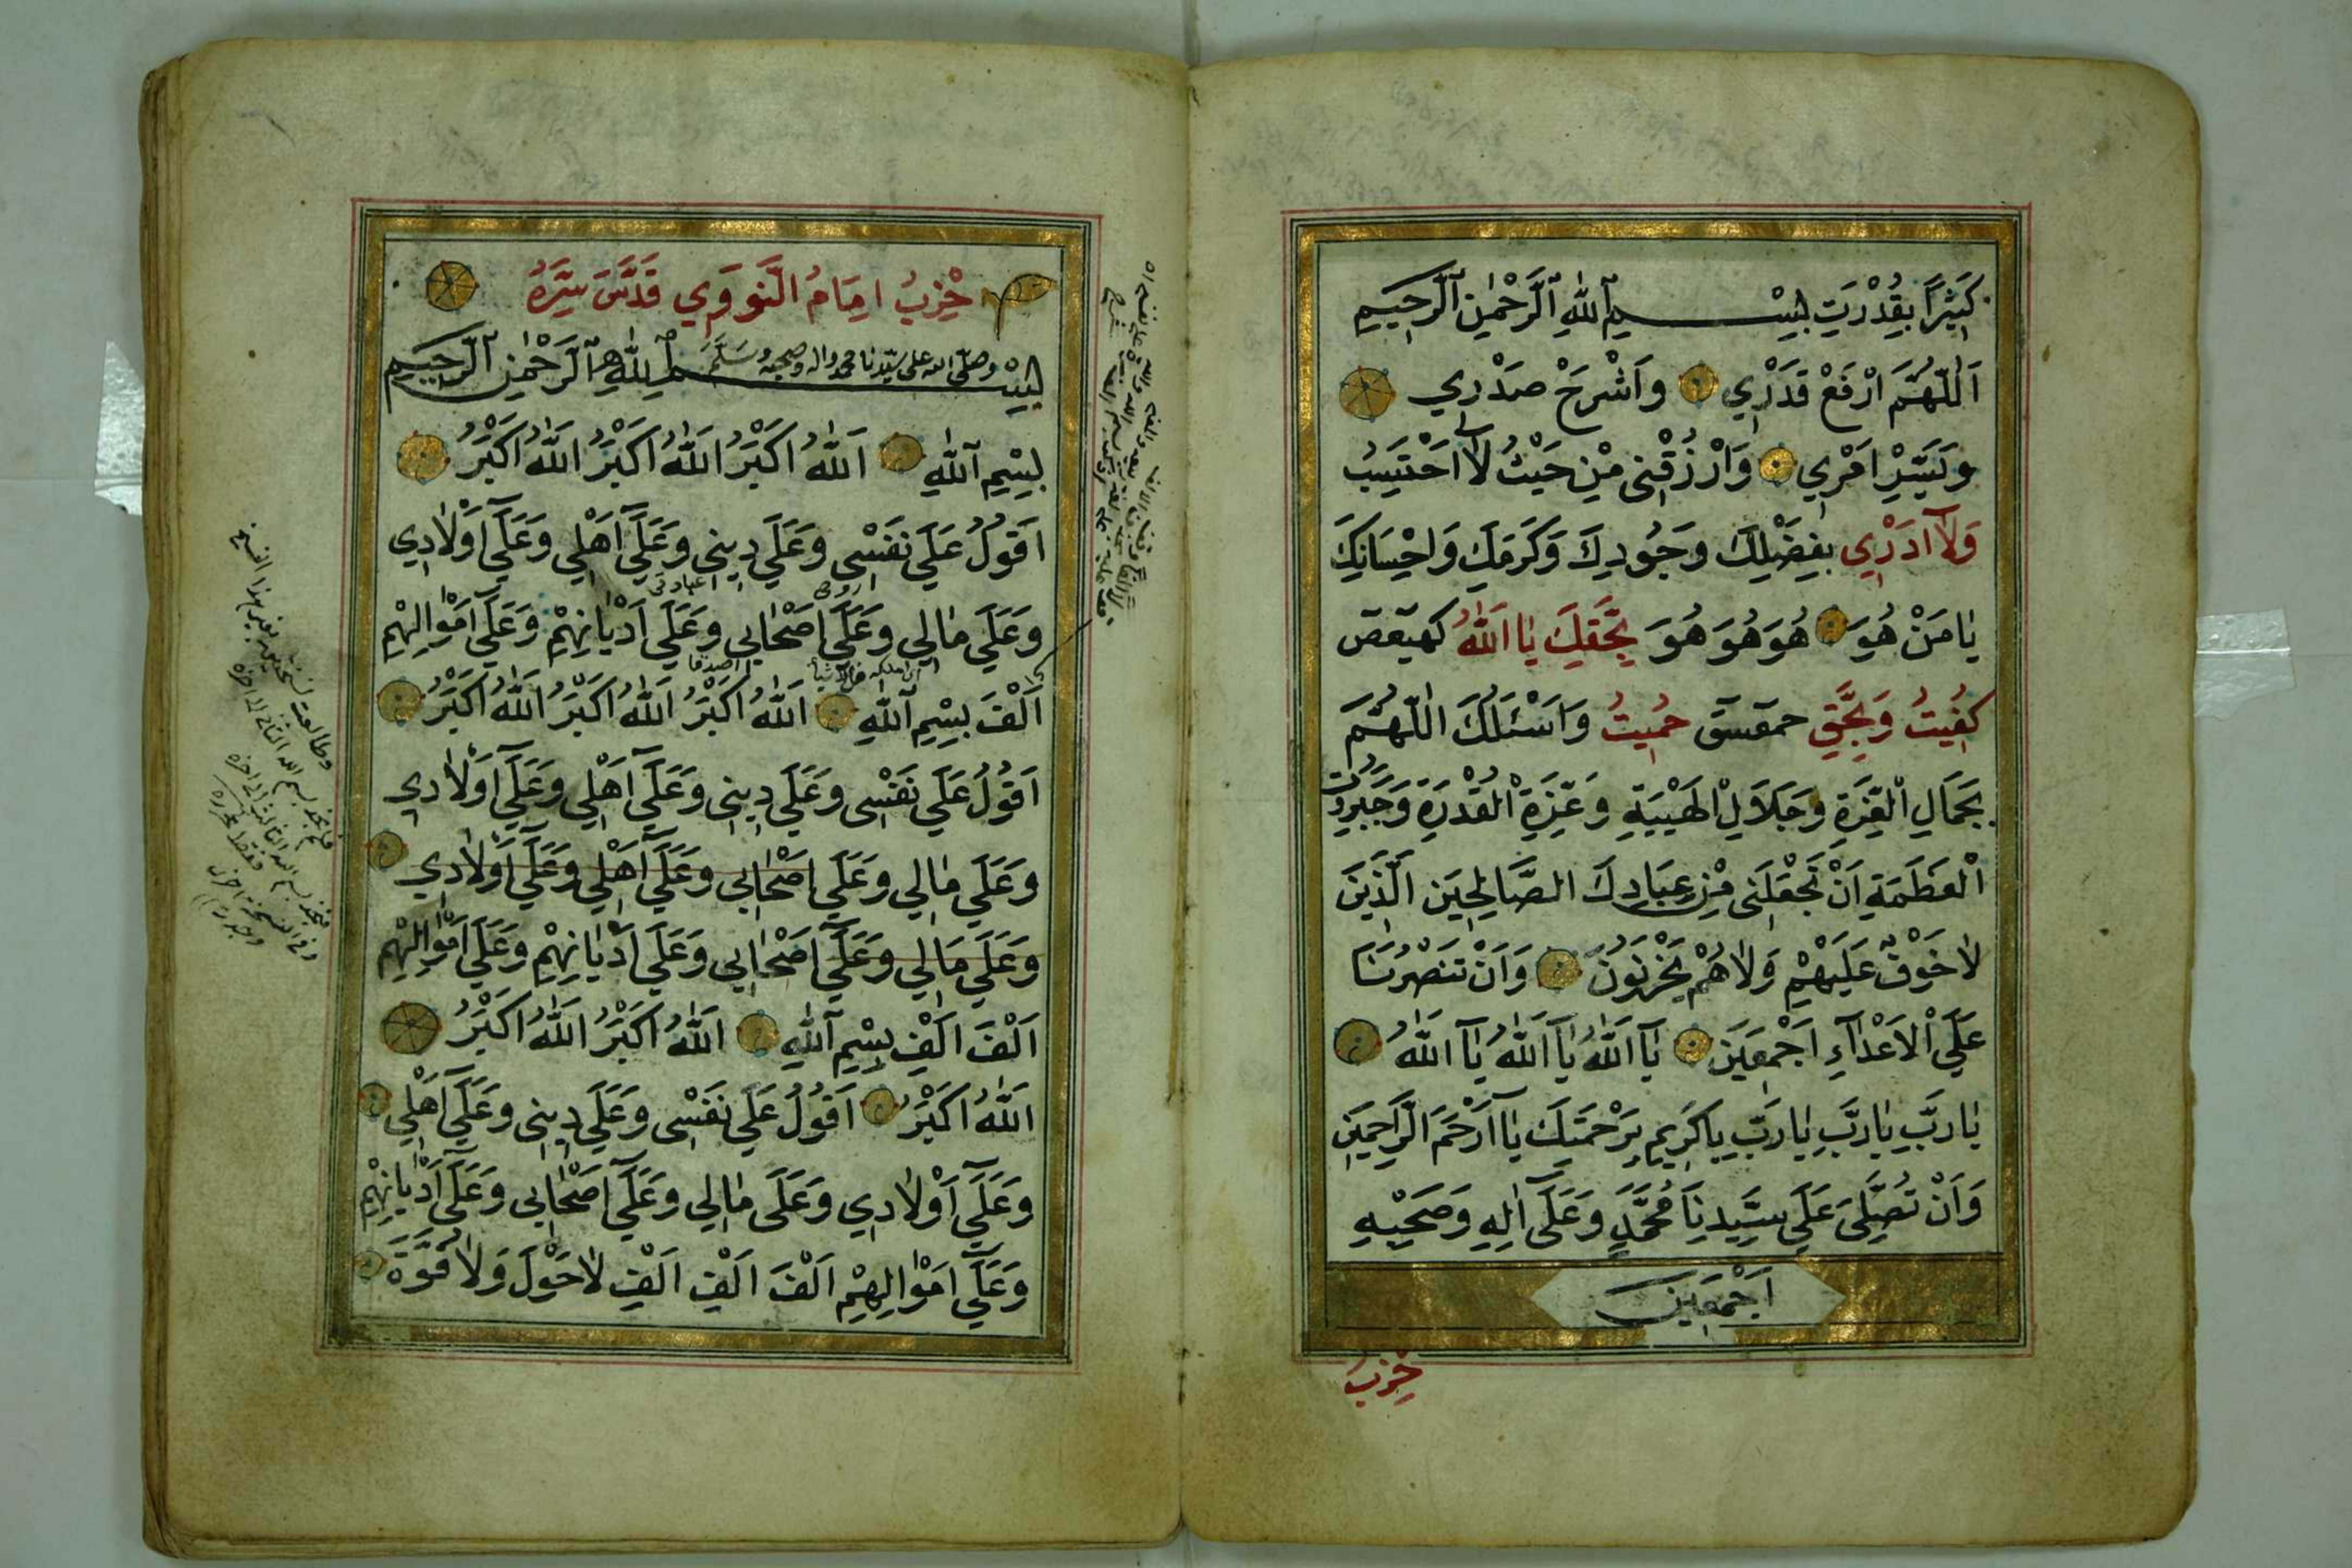 كَثِيرًا بِقُدْرَتِ بِسْــــــمِ ٱللّٰهِ ٱلرَّحْمٰنِ ٱلرَّحِيمِ
اَللّٰهُمَّ ارْفَعْ قَدْرِي وَاشْرَحْ صَدْرِي
وَيَسِّرْ اَمْرِي وَارْزُقْنِي مِنْ حَيْثُ لَا اَحْتَسِبُ
وَلَآ اَدْرِي بِفَضْلِكَ وَجُودِكَ وَكَرَمِكَ وَاِحْسَانِكَ
يَا مَنْ هُوَ هُوَ هُوَ هُوَ بِحَقِّكَ يَا اَللّٰهُ كهيعص
كُفِيتُ وَبِحَقِّ حمعسق حُمِيتُ وَاَسْئَلُكَ اللّٰهُمَّ
بِجَمَالِ الْعِزَّةِ وَجَلَالِ الْهَيْبَةِ وَعِزَّةِ الْقُدْرَةِ وَجَبَرُوتِ
الْعَظَمَةِ اَنْ تَجْعَلَنِي مِنْ عِبَادِكَ الصَّالِحِينَ الَّذِينَ
لَا خَوْفٌ عَلَيْهِمْ وَلَا هُمْ يَحْزَنُونَ وَاَنْ تَنْصُرَنَا
عَلَى الْاَعْدَآءِ اَجْمَعِينَ يَآ اَللّٰهُ يَآ اَللّٰهُ يَآ اَللّٰهُ
يَا رَبِّ يَا رَبِّ يَا رَبِّ يَا كَرِيمُ بِرَحْمَتِكَ يَآ اَرْحَمَ الرَّاحِمِينَ
وَاَنْ تُصَلِّيَ عَلَى سَيِّدِنَا مُحَمَّدٍ وَعَلَى اٰلِهِ وَصَحْبِهِ
اَجْمَعِينَ
حِزْبُ
حِزْبُ اِمَامُ النَّوَوِي قَدَّسَ سِرَّهُ
بِسْــــــمِ ٱللّٰهِ ٱلرَّحْمٰنِ ٱلرَّحِيمِ
وصلى الله على سيدنا محمد واله وصحبه وَسَلَّمَ
بِسْمِ ٱللّٰهِ اَللّٰهُ اَكْبَرُ اَللّٰهُ اَكْبَرُ اَللّٰهُ اَكْبَرُ
اَقُولُ عَلَى نَفْسِي وَعَلَى دِينِي وَعَلَى اَهْلِي وَعَلَى اَوْلَادِي
وَعَلَى مَالِي وَعَلَى اَصْحَابِي وَعَلَى اَدْيَانِهِمْ وَعَلَى اَمْوَالِهِمْ
اَلْفَ بِسْمِ ٱللّٰهِ اَللّٰهُ اَكْبَرُ اَللّٰهُ اَكْبَرُ اَللّٰهُ اَكْبَرُ
اَقُولُ عَلَى نَفْسِي وَعَلَى دِينِي وَعَلَى اَهْلِي وَعَلَى اَوْلَادِي
وَعَلَى مَالِي وَعَلَى اَصْحَابِي وَعَلَى اَهْلِي وَعَلَى اَوْلَادِي
وَعَلَى مَالِي وَعَلَى اَصْحَابِي وَعَلَى اَدْيَانِهِمْ وَعَلَى اَمْوَالِهِمْ
اَلْفَ اَلْفِ بِسْمِ ٱللّٰهِ اَللّٰهُ اَكْبَرُ اَللّٰهُ اَكْبَرُ
اَللّٰهُ اَكْبَرُ اَقُولُ عَلَى نَفْسِي وَعَلَى دِينِي وَعَلَى اَهْلِي
وَعَلَى اَوْلَادِي وَعَلَى مَالِي وَعَلَى اَصْحَابِي وَعَلَى اَدْيَانِهِمْ
وَعَلَى اَمْوَالِهِمْ اَلْفَ اَلْفِ اَلْفِ لَا حَوْلَ وَلَا قُوَّةَ